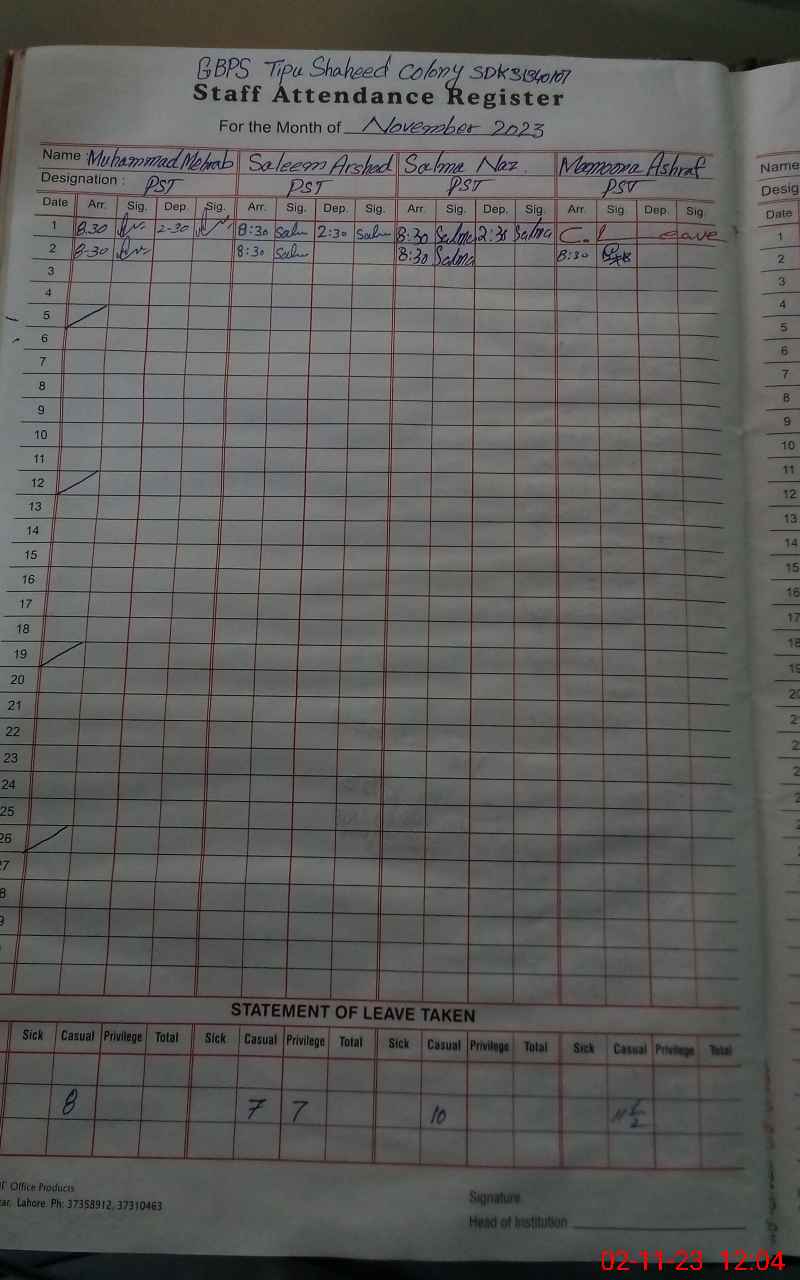 GBPS Tipu Shaheed Colony SDK 31340107
Staff Attendance Register
For the Month of November 2023
Name : Muhammad Mehrab Saleem Arshad Salma Naz. Mamoona Ashraf Name
Designation : PST PST PST PST Desig
Date Arr. Sig. Dep. Sig. Arr. Sig. Dep. Sig. Arr. Sig. Dep. Sig. Arr. Sig. Dep. Sig. Date
1 8.30 2-30 8:30 Salm 2:30 Salm 8:30 Salma 2:30 Salma C. Leave 1
2 8-30 8:30 Salm 8:30 Salma 8:30 2
3 3
4 4
5 5
6 6
7 7
8 8
9 9
10 10
11 11
12 12
13 13
14 14
15 15
16 16
17 17
18 18
19 19
20 20
21 2
22 2
23 2
24 2
25
26
27
8
9
STATEMENT OF LEAVE TAKEN
Sick Casual Privilege Total Sick Casual Privilege Total Sick Casual Privilege Total Sick Casual Privilege Total
8 7 7 10 11 1/2
Office Products
zar, Lahore Ph: 37358912, 37310463
Signature
Head of Institution
02-11-23 12:04